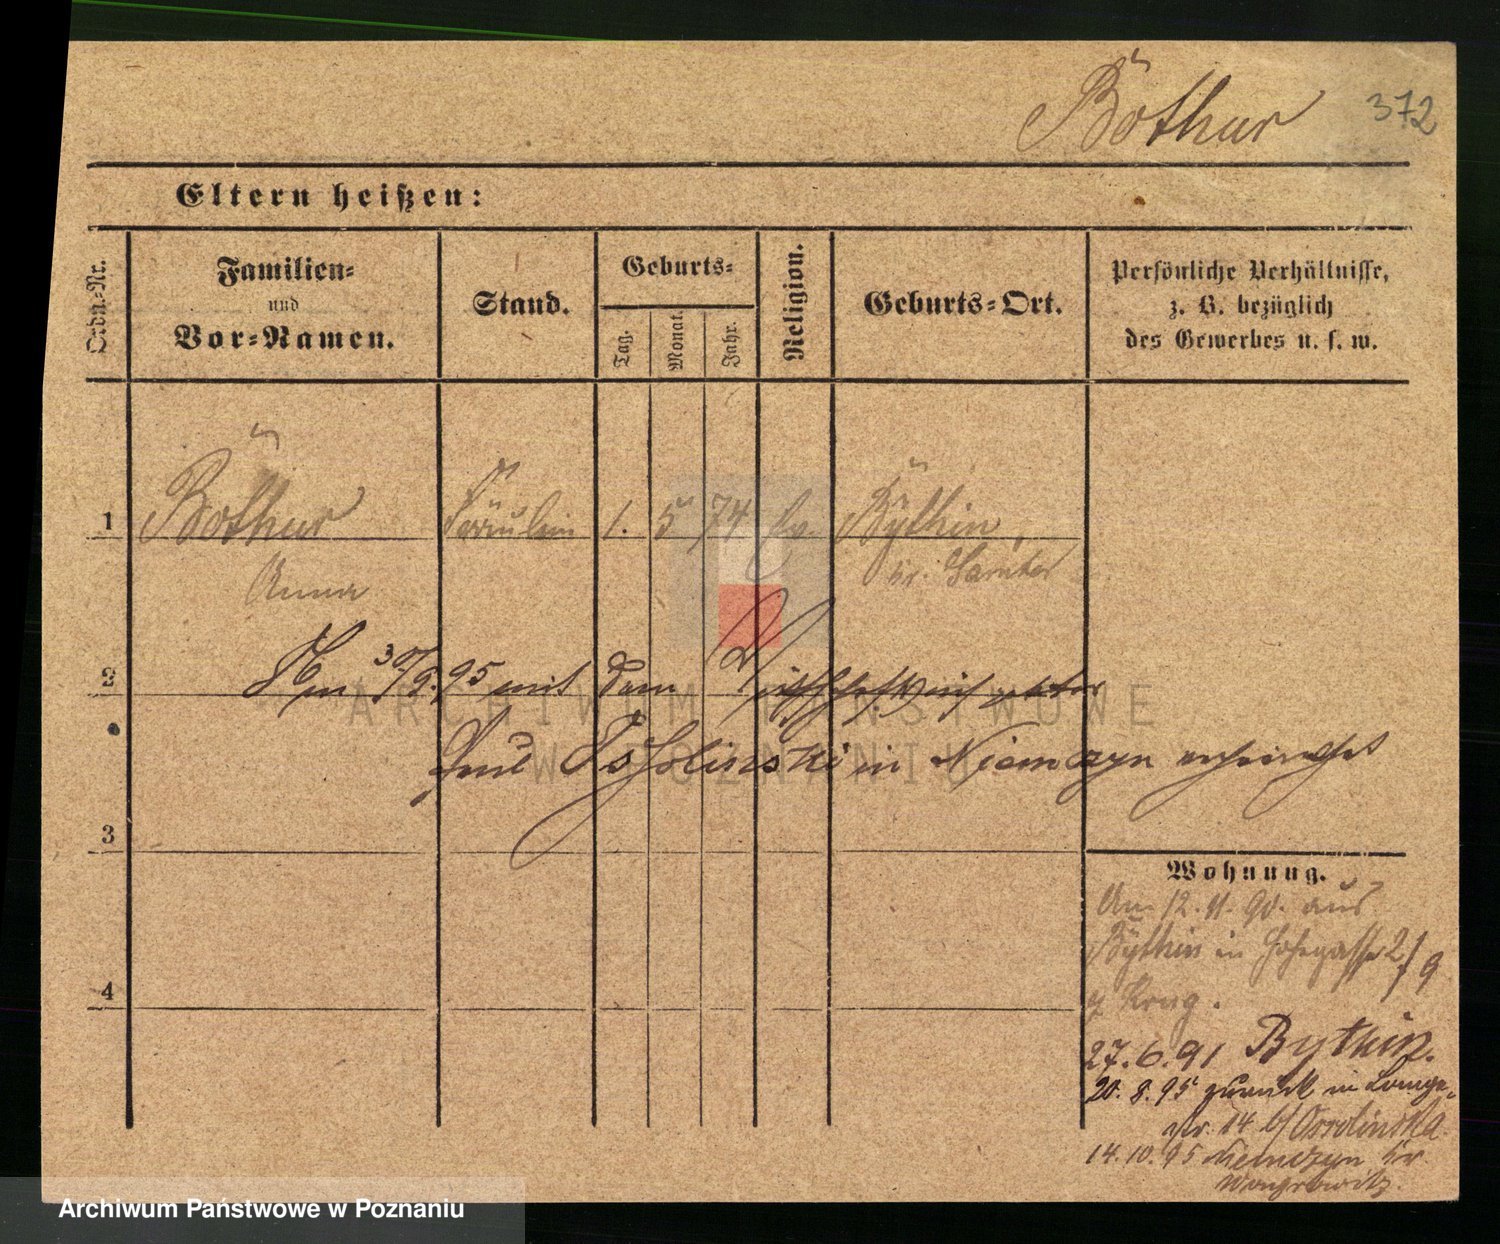 Böthur 372
Eltern heißen:
Ordn.-Nr.
Familien-
und
Vor-Namen.
Stand.
Geburts-
Tag.
Monat.
Jahr.
Religion.
Geburts-Ort.
Persönliche Verhältnisse,
z. B. bezüglich
des Gewerbes u. s. w.
1 Böthur Fräulein 1. 5 74 ev. Bythin,
Anna Kr. Samter
2 Am 30/9. 95 mit dem
Paul in Niemczyn
3
Wohnung.
Am 12. 11. 90. aus
Bythin in Hohegasse 2/9
z Krug.
4
27. 6. 91 Bythin.
20. 8. 95 zurück in
str. 14 b/ Ossolinska
14. 10. 95 Niemczyn Kr.
Wongrowitz.
ARCHIWUM PAŃSTWOWE
W POZNANIU
Archiwum Państwowe w Poznaniu